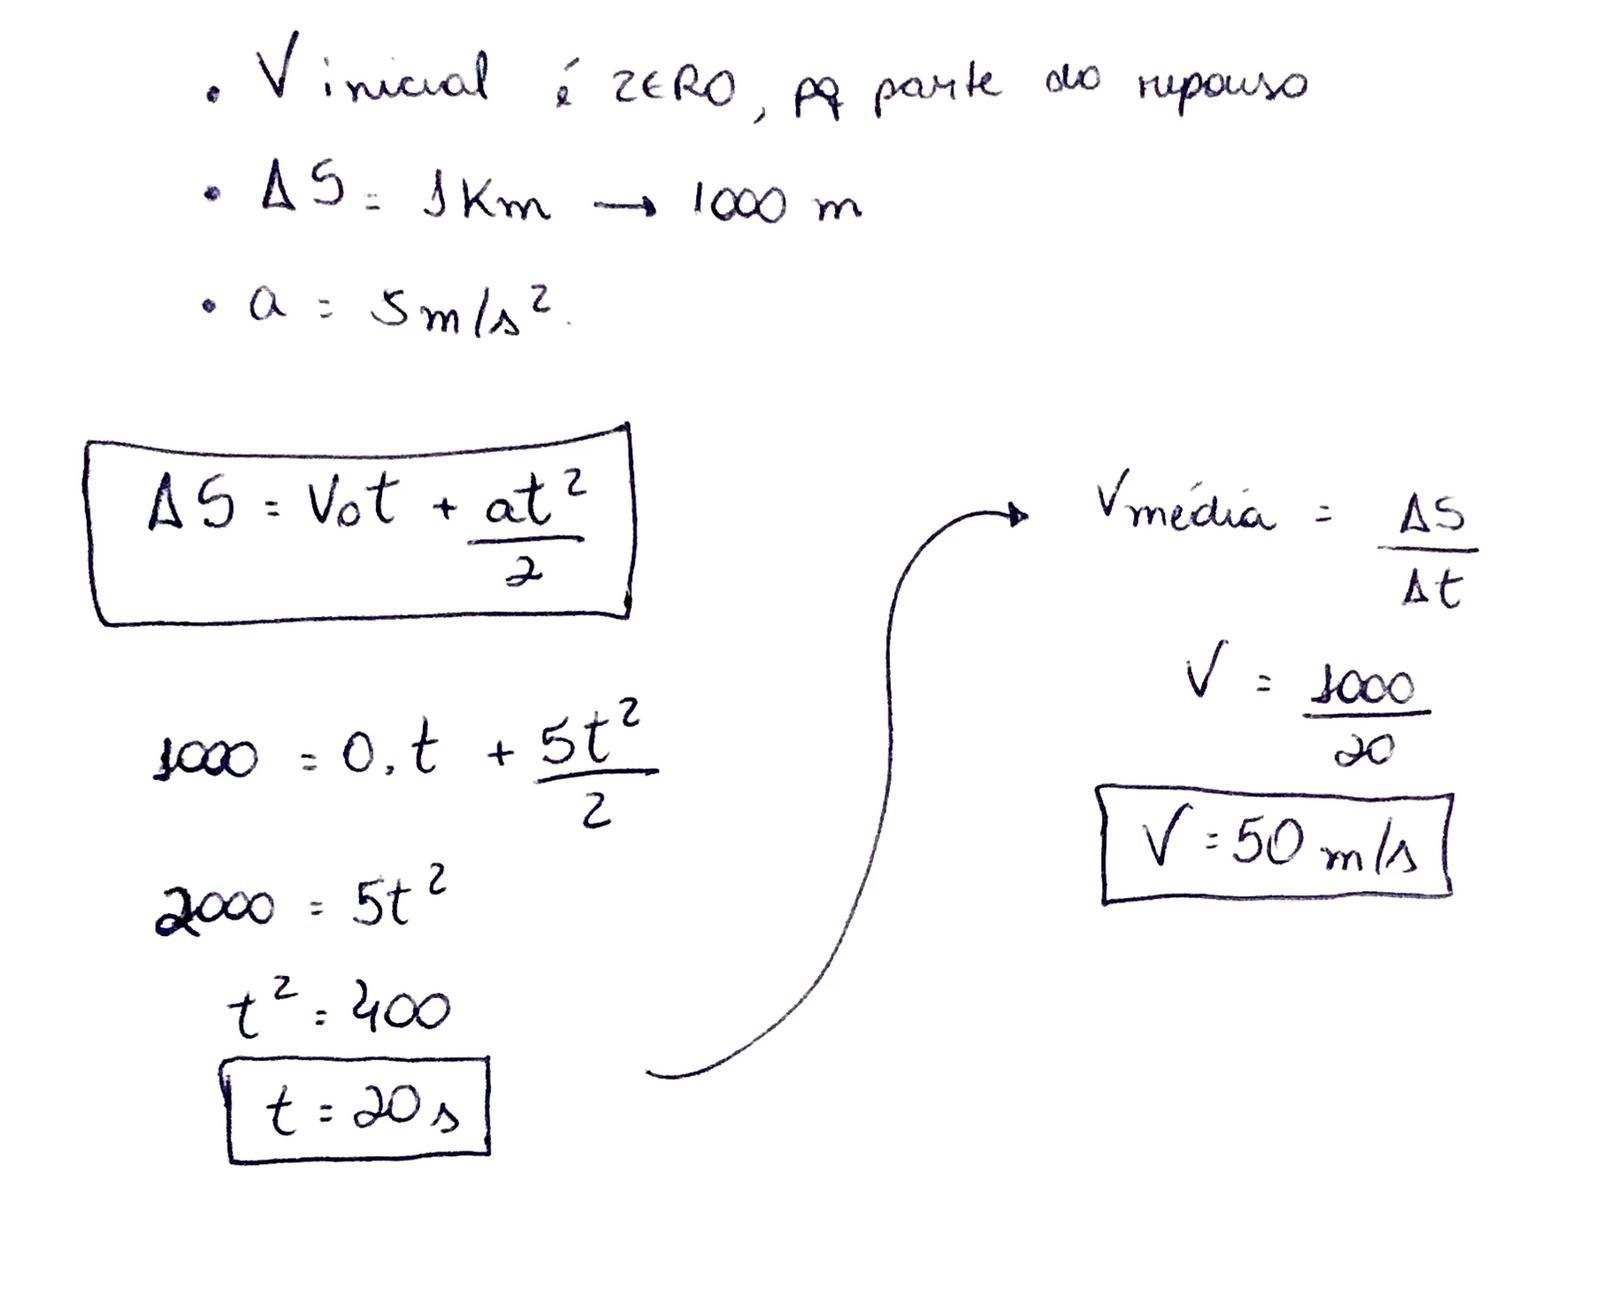 • V inicial é ZERO, pq parte do repouso
• ΔS = 1Km → 1000 m
• a = 5m/s².
ΔS = V₀t + at²/2
1000 = 0.t + 5t²/2
2000 = 5t²
t² = 400
t = 20s
Vmédia = ΔS/Δt
V = 1000/20
V = 50 m/s